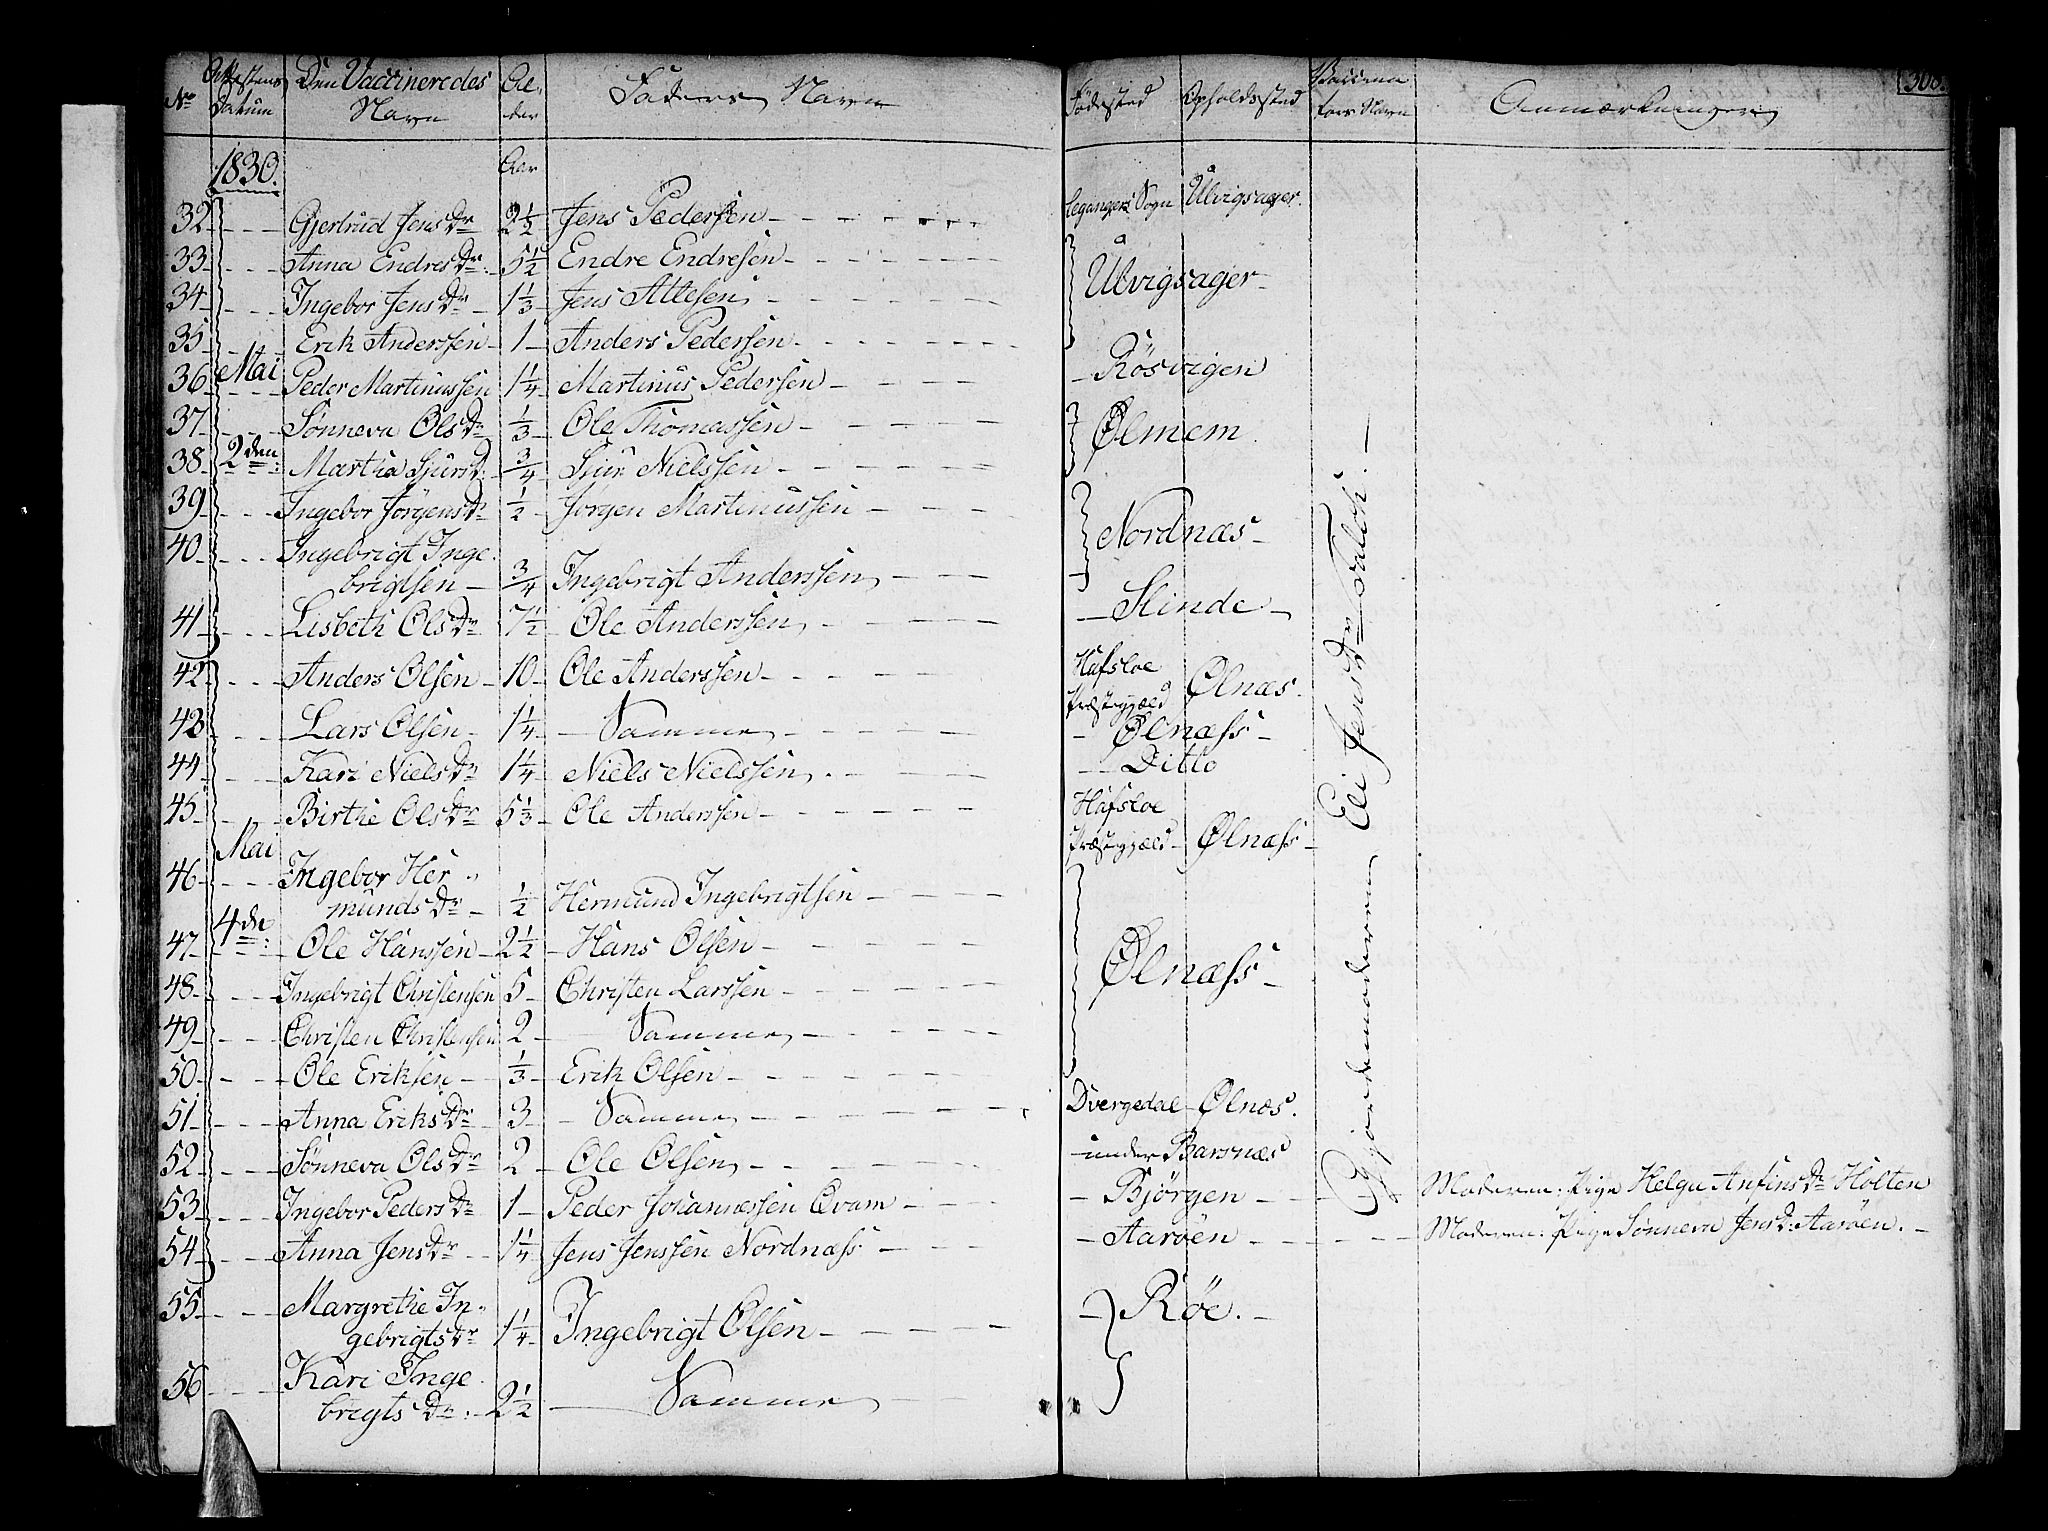 308.
No Attestens Datum Den Vaccineredes Navn Alder Faders Navn Fødested Opholdssted Vaccinatørs Navn Anmærkninger
1830. Aar
32 Gjertrud Jens Dr 2½ Jens Pedersen Leganger Sogn Ulvigsager.
33 Anna Endres Dr. 5½ Endre Endresen
34 Ingebor Jens Dr 1⅓ Jens Attesen Ulvigsager
35 Erik Anderssen 1 Anders Pedersen
36 Mai Peder Martinussen 1¼ Martinus Pedersen Rösvigen
37 Sönneva Ols Dr ⅓ Ole Thomassen Ølmem
38 2den Martha Sjurs D. ¾ Siur Nielssen
39 Ingebor Jörgens Dr ½ Jörgen Martinussen Nordnæs
40 Ingebrigt Inge
brigtsen ¾ Ingebrigt Anderssen
41 Lisbeth Ols Dr 7½ Ole Anderssen Slinde
42 Anders Olsen 10 Ole Anderssen Hafsloe
Præstegjæld Ølnæs.
43 Lars Olsen 1¼ Samme Ølnæss
44 Kari Niels Dr 1¼ Niels Nielssen Ditto
45 Birthe Ols Dr 5⅓ Ole Anderssen Hafsloe
Mai Præstegjæld Ølnæss
46 Ingebor Her
munds Dr ½ Hermund Ingebrigtsen
4de:
47 Ole Hanssen 2½ Hans Olsen Ølnæss
48 Ingebrigt Christensen 5 Christen Larssen
49 Christen Christensen 2 Samme
50 Ole Eriksen ⅓ Erik Olsen
51 Anna Eriks Dr 3 Samme Dvergedal Ølnæs.
52 Sönneva Ols Dr 2 Ole Olsen under Barsnæs
53 Ingebor Peders Dr 1 Peder Johannessen Qvam Björgen Moderen: Pige Helga Anfins Dr Holten
54 Anna Jens Dr 1¼ Jens Jenssen Nordnæss Aaröen Moderen: Pige Sønneva Jens D: Aarøen.
55 Margrethe In
gebrigts Dr 1¼ Ingebrigt Olsen Røe.
56 Kari Inge
brigts Dr: 2½ Samme
Gjordemoderen Eli Jens Dr